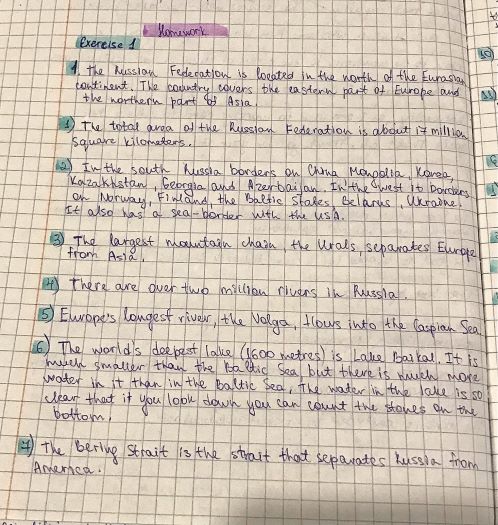 Homework
Exercise 1
1. The Russian Federation is located in the north of the Eurasian
continent. The country covers the eastern part of Europe and
the northern part of Asia.
1) The total area of the Russian Federation is about 17 million
square kilometers.
2) In the south Russia borders on China Mongolia, Korea,
Kazakhstan, Georgia and Azerbaijan. In the west it borders
on Norway, Finland, the Baltic States, Belarus, Ukraine.
It also has a sea-border with the USA.
3) The largest mountain chain, the Urals, separates Europe
from Asia.
4) There are over two million rivers in Russia.
5) Europe's longest river, the Volga, flows into the Caspian Sea.
6) The world's deepest lake (1600 metres) is Lake Baikal. It is
much smaller than the Baltic Sea, but there is much more
water in it than in the Baltic Sea. The water in the lake is so
clear that if you look down you can count the stones on the
bottom.
7) The Bering Strait is the strait that separates Russia from
America.
10)
11)